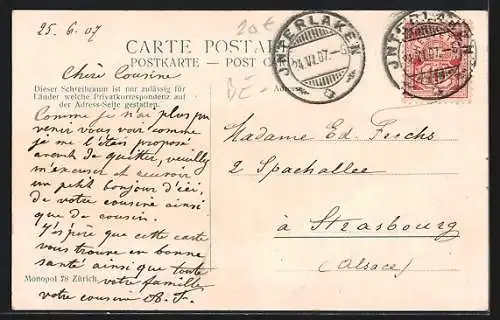 25. 6. 07
20€
BE-
CARTE POSTALE
POSTKARTE — POST C
INTERLAKEN
24.VI.07.-6
INTERLAKEN
Chère Cousine
Dieser Schreibraum ist nur zulässig für
Länder welche Privatkorrespondenz auf
der Adress-Seite gestatten.
Comme je n'ai plus pu
venir vous voir comme
je me l'étais proposé
avant de quitter, veuillez
m'excuser et recevoir
un petit bonjour d'ici,
de votre cousine ainsi
que de cousin.
J'espère que cette carte
vous trouve en bonne
santé ainsi que toute
votre famille
votre cousine
Monopol 78 Zürich
Madame Ed.
2
à Strasbourg
(Alsace)